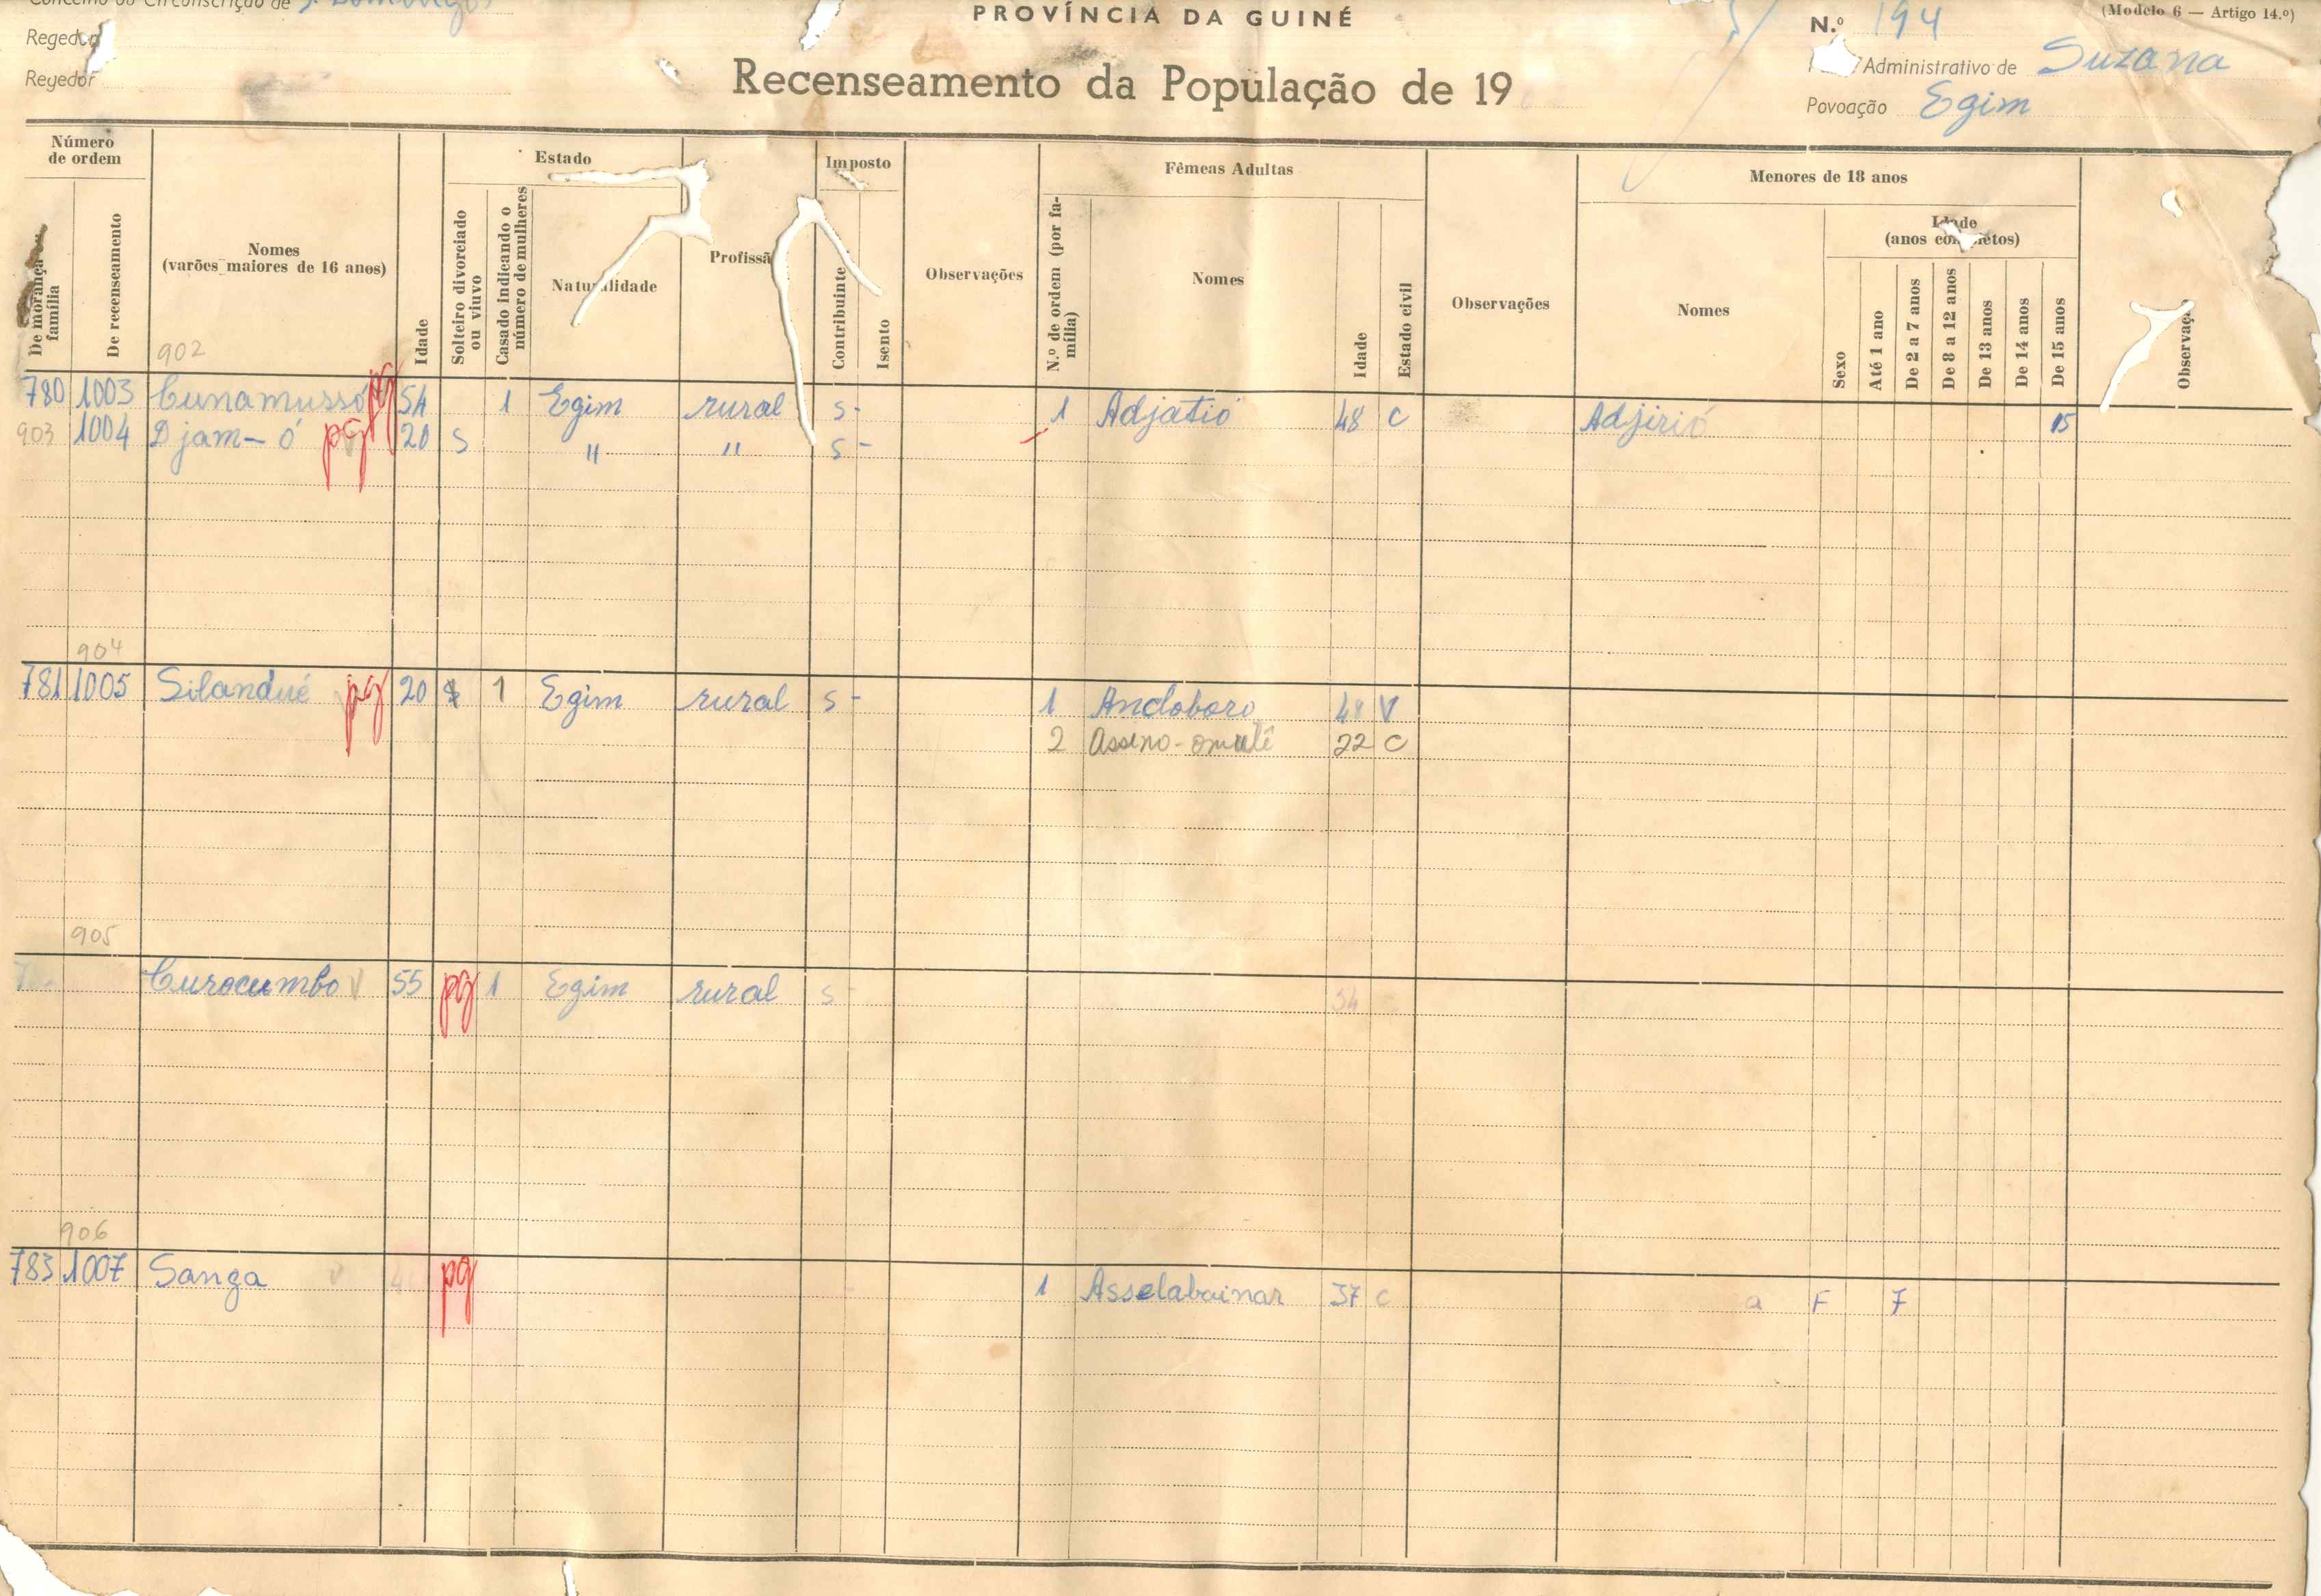 Concelho ou Circunscrição de S. Domingos
PROVÍNCIA DA GUINÉ
N.º 194
(Modelo 6 — Artigo 14.º)
Regedor
Administrativo de Suzana
Regedor
Recenseamento da População de 19
Povoação Egim
Número de ordem
De morança família
De recenseamento
Nomes
(varões maiores de 16 anos)
Idade
Estado
Solteiro divorciado ou viuvo
Casado indicando o número de mulheres
Naturalidade
Profissã
Imposto
Contribuinte
Isento
Observações
Fêmeas Adultas
N.º de ordem (por família)
Nomes
Idade
Estado civil
Observações
Menores de 18 anos
Nomes
Sexo
Idade
(anos completos)
Até 1 ano
De 2 a 7 anos
De 8 a 12 anos
De 13 anos
De 14 anos
De 15 anos
Observaç
902
780 1003 Cunamussó pg 54 1 Egim rural S- 1 Adjatió 48 C Adjirió 15
903 1004 Djam-ó pg 20 S " " S-
904
781 1005 Silandué pg 20 1 Egim rural S- 1 Andoboro 48 V
2 Assino-omulê 22 C
905
Curocumbo V 55 pg 1 Egim rural S 54
906
783 1007 Sanga V pg 1 Asselabainar 37 C a F 7